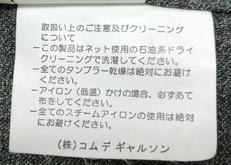 取扱い上のご注意及びクリーニング
について
－この製品はネット使用の石油系ドライ
クリーニングで洗濯してください。
－全てのタンブラー乾燥は絶対にお避け
ください。
－アイロン（低温）かけの場合、必ずあて
布をしてください。
－全てのスチームアイロンの使用は絶対に
お避けください。
（株）コム デ ギャルソン